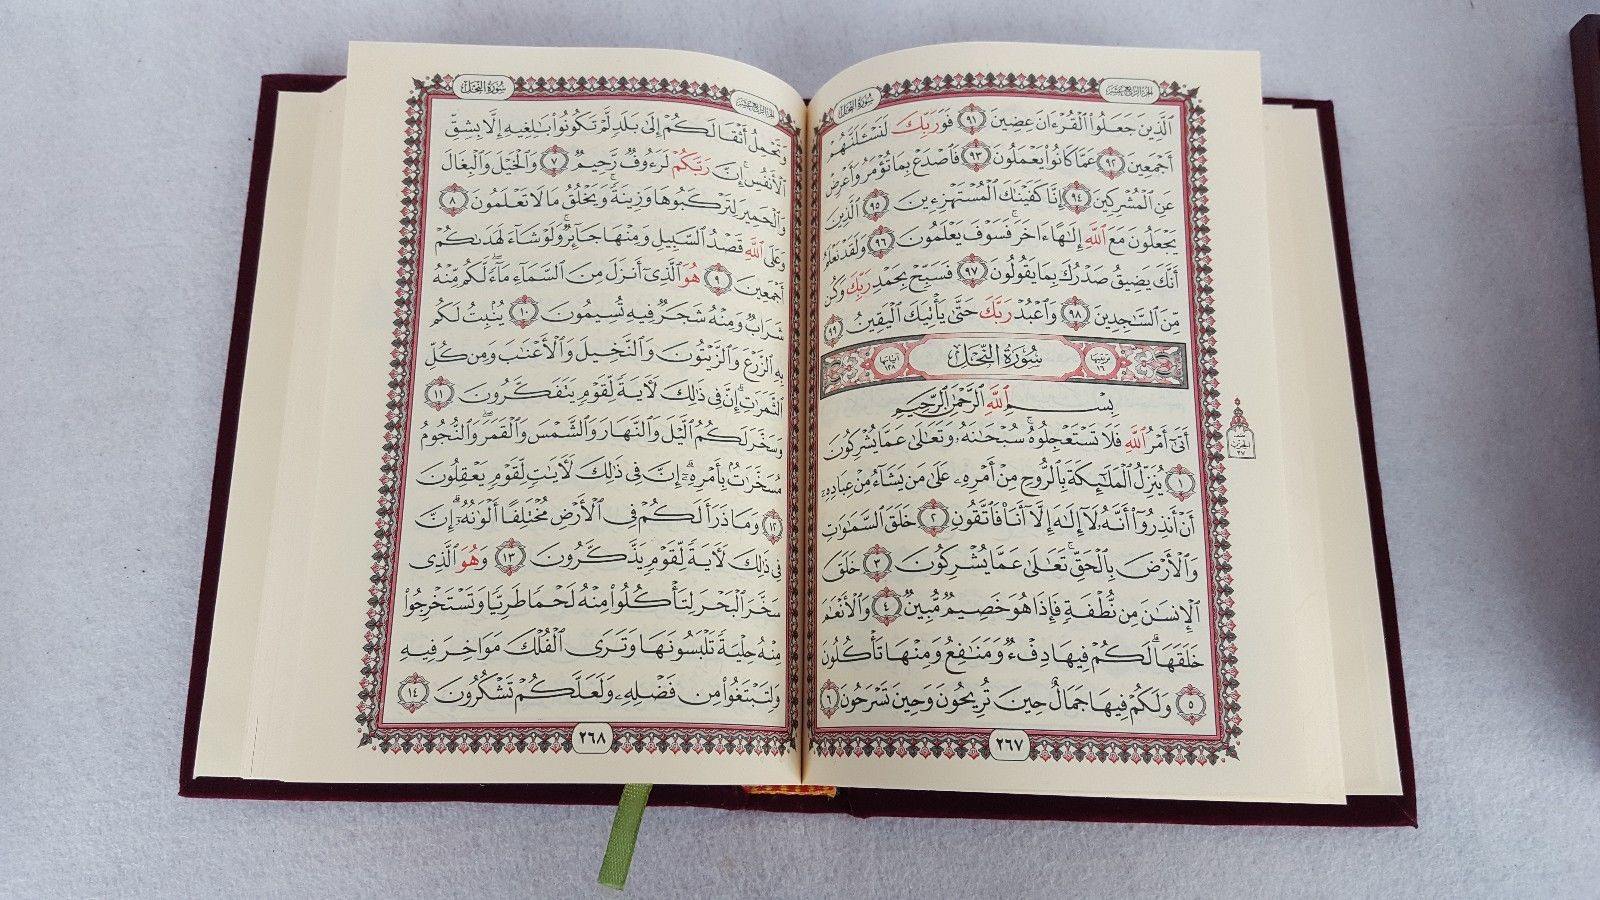 سُورَةُ النَّحْلِ
الجزء الرابع عشر
الَّذِينَ جَعَلُوا۟ الْقُرْءَانَ عِضِينَ ٩١ فَوَرَبِّكَ لَنَسْـَٔلَنَّهُمْ
أَجْمَعِينَ ٩٢ عَمَّا كَانُوا۟ يَعْمَلُونَ ٩٣ فَاصْدَعْ بِمَا تُؤْمَرُ وَأَعْرِضْ
عَنِ الْمُشْرِكِينَ ٩٤ إِنَّا كَفَيْنَٰكَ الْمُسْتَهْزِءِينَ ٩٥ الَّذِينَ
يَجْعَلُونَ مَعَ اللَّهِ إِلَٰهًا ءَاخَرَ ۚ فَسَوْفَ يَعْلَمُونَ ٩٦ وَلَقَدْ نَعْلَمُ
أَنَّكَ يَضِيقُ صَدْرُكَ بِمَا يَقُولُونَ ٩٧ فَسَبِّحْ بِحَمْدِ رَبِّكَ وَكُن
مِّنَ السَّٰجِدِينَ ٩٨ وَاعْبُدْ رَبَّكَ حَتَّىٰ يَأْتِيَكَ الْيَقِينُ ٩٩
ترتيبها ١٦ سُورَةُ النَّحْلِ آياتها ١٢٨
بِسْمِ اللَّهِ الرَّحْمَٰنِ الرَّحِيمِ
أَتَىٰٓ أَمْرُ اللَّهِ فَلَا تَسْتَعْجِلُوهُ ۚ سُبْحَٰنَهُۥ وَتَعَٰلَىٰ عَمَّا يُشْرِكُونَ
١ يُنَزِّلُ الْمَلَٰٓئِكَةَ بِالرُّوحِ مِنْ أَمْرِهِۦ عَلَىٰ مَن يَشَآءُ مِنْ عِبَادِهِۦٓ
أَنْ أَنذِرُوٓا۟ أَنَّهُۥ لَآ إِلَٰهَ إِلَّآ أَنَا۠ فَاتَّقُونِ ٢ خَلَقَ السَّمَٰوَٰتِ
وَالْأَرْضَ بِالْحَقِّ ۚ تَعَٰلَىٰ عَمَّا يُشْرِكُونَ ٣ خَلَقَ
الْإِنسَٰنَ مِن نُّطْفَةٍ فَإِذَا هُوَ خَصِيمٌ مُّبِينٌ ٤ وَالْأَنْعَٰمَ
خَلَقَهَا ۗ لَكُمْ فِيهَا دِفْءٌ وَمَنَٰفِعُ وَمِنْهَا تَأْكُلُونَ
٥ وَلَكُمْ فِيهَا جَمَالٌ حِينَ تُرِيحُونَ وَحِينَ تَسْرَحُونَ ٦
٢٦٧
حزب
٢٧
الجزء الرابع عشر
سُورَةُ النَّحْلِ
وَتَحْمِلُ أَثْقَالَكُمْ إِلَىٰ بَلَدٍ لَّمْ تَكُونُوا۟ بَٰلِغِيهِ إِلَّا بِشِقِّ
الْأَنفُسِ ۚ إِنَّ رَبَّكُمْ لَرَءُوفٌ رَّحِيمٌ ٧ وَالْخَيْلَ وَالْبِغَالَ
وَالْحَمِيرَ لِتَرْكَبُوهَا وَزِينَةً ۚ وَيَخْلُقُ مَا لَا تَعْلَمُونَ ٨
وَعَلَى اللَّهِ قَصْدُ السَّبِيلِ وَمِنْهَا جَآئِرٌ ۚ وَلَوْ شَآءَ لَهَدَىٰكُمْ
أَجْمَعِينَ ٩ هُوَ الَّذِىٓ أَنزَلَ مِنَ السَّمَآءِ مَآءً ۖ لَّكُم مِّنْهُ
شَرَابٌ وَمِنْهُ شَجَرٌ فِيهِ تُسِيمُونَ ١٠ يُنۢبِتُ لَكُم
بِهِ الزَّرْعَ وَالزَّيْتُونَ وَالنَّخِيلَ وَالْأَعْنَٰبَ وَمِن كُلِّ
الثَّمَرَٰتِ ۗ إِنَّ فِى ذَٰلِكَ لَءَايَةً لِّقَوْمٍ يَتَفَكَّرُونَ ١١
وَسَخَّرَ لَكُمُ الَّيْلَ وَالنَّهَارَ وَالشَّمْسَ وَالْقَمَرَ ۖ وَالنُّجُومُ
مُسَخَّرَٰتٌۢ بِأَمْرِهِۦٓ ۗ إِنَّ فِى ذَٰلِكَ لَءَايَٰتٍ لِّقَوْمٍ يَعْقِلُونَ
١٢ وَمَا ذَرَأَ لَكُمْ فِى الْأَرْضِ مُخْتَلِفًا أَلْوَٰنُهُۥٓ ۗ إِنَّ
فِى ذَٰلِكَ لَءَايَةً لِّقَوْمٍ يَذَّكَّرُونَ ١٣ وَهُوَ الَّذِى
سَخَّرَ الْبَحْرَ لِتَأْكُلُوا۟ مِنْهُ لَحْمًا طَرِيًّا وَتَسْتَخْرِجُوا۟
مِنْهُ حِلْيَةً تَلْبَسُونَهَا وَتَرَى الْفُلْكَ مَوَاخِرَ فِيهِ
وَلِتَبْتَغُوا۟ مِن فَضْلِهِۦ وَلَعَلَّكُمْ تَشْكُرُونَ ١٤
٢٦٨